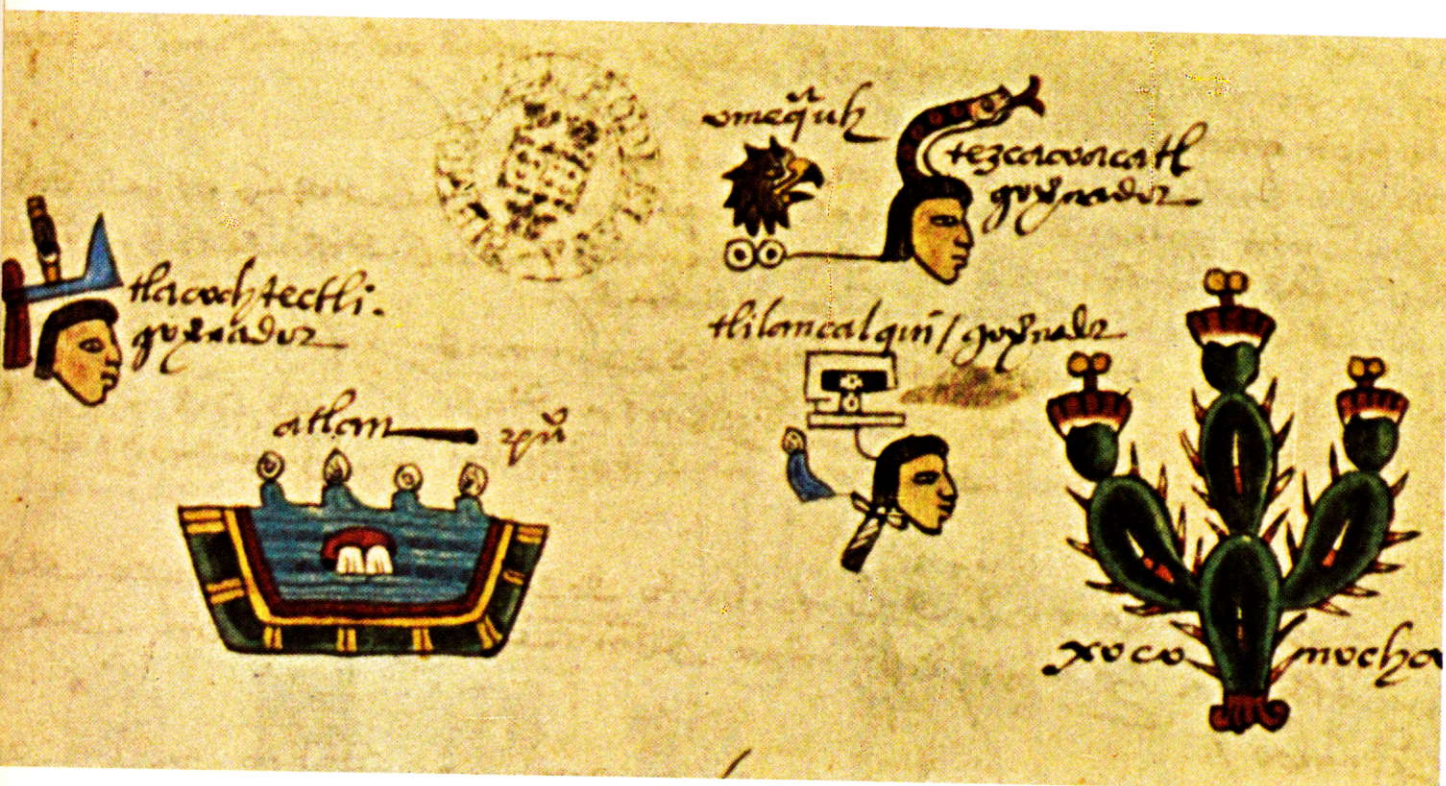 omeq̃uh
tezcacoacatl
gour̃nador
tlacochtectli.
gour̃nador
tlilancalqui / gour̃nador
atlan
puº
xoco nocho